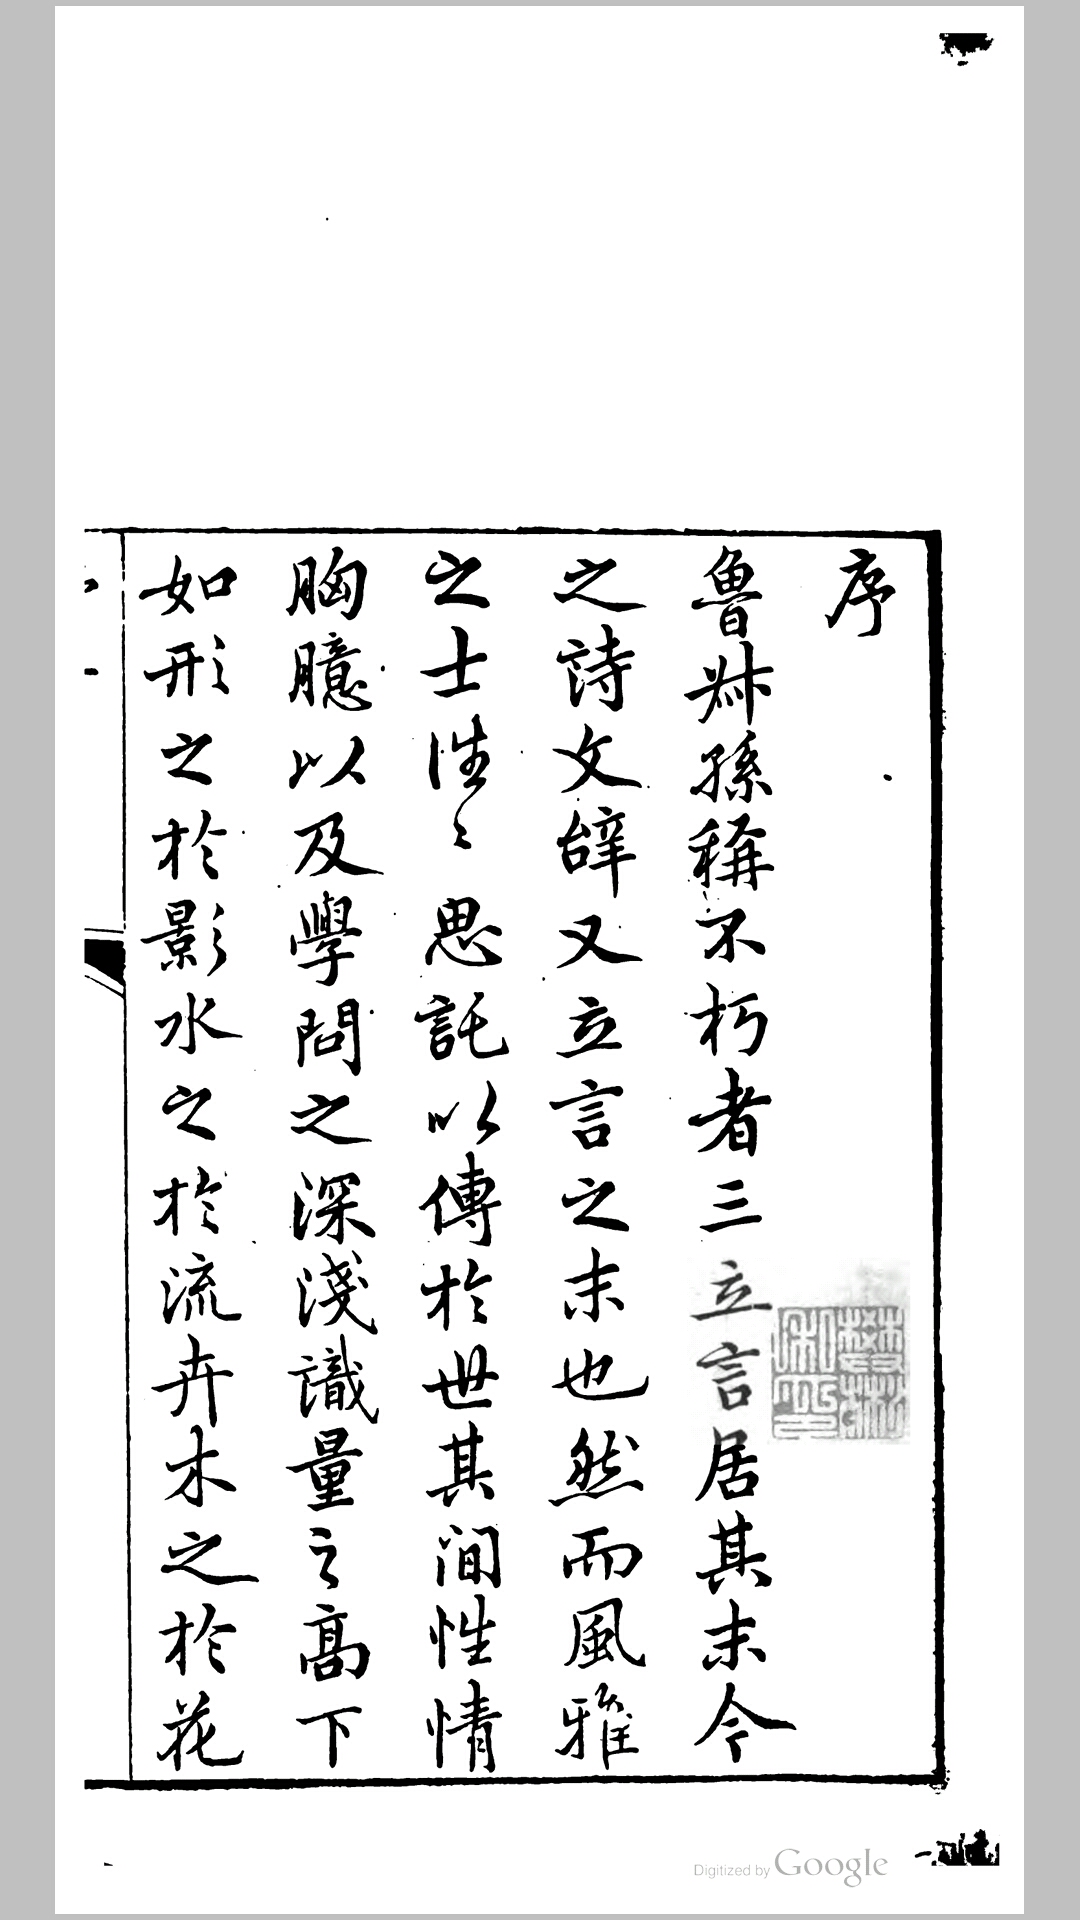 序
魯叔孫稱不朽者三立言居其末今
之詩文辭又立言之末也然而風雅
之士徃〻思託以傳於世其間性情
胸臆以及學問之深淺識量之高下
如形之於影水之於流卉木之於花
Digitized by Google